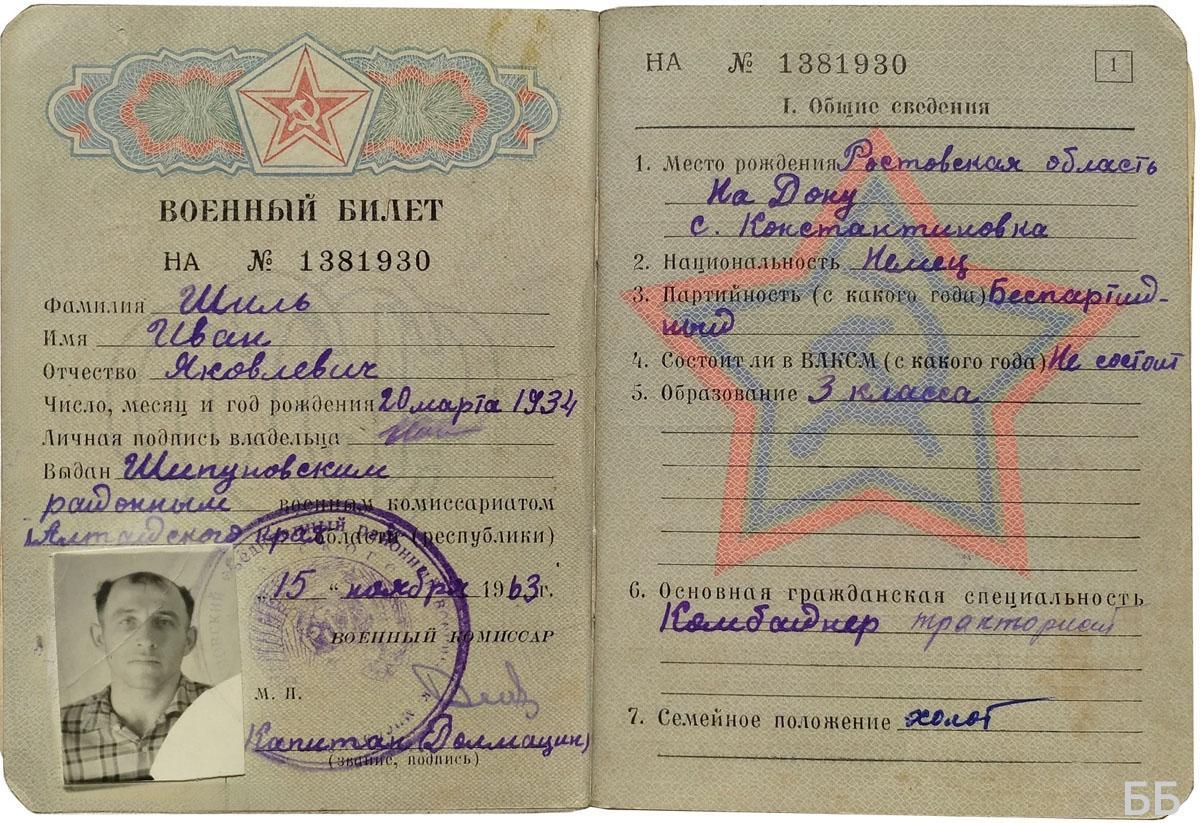 ВОЕННЫЙ БИЛЕТ
НА № 1381930
Фамилия Шиль
Имя Иван
Отчество Яковлевич
Число, месяц и год рождения 20 марта 1934
Личная подпись владельца
Выдан Шипуновским
районным военным комиссариатом
Алтайского края области (республики)
„15“ ноября 1963 г.
ВОЕННЫЙ КОМИССАР
М. П.
Капитан (Долмацин)
(звание, подпись)
НА № 1381930
1
I. Общие сведения
1. Место рождения Ростовская область
На Дону
с. Константиновка
2. Национальность Немец
3. Партийность (с какого года) Беспартий-
ный
4. Состоит ли в ВЛКСМ (с какого года) Не состоит
5. Образование 3 класса
6. Основная гражданская специальность
Комбайнер
7. Семейное положение холост
ББ